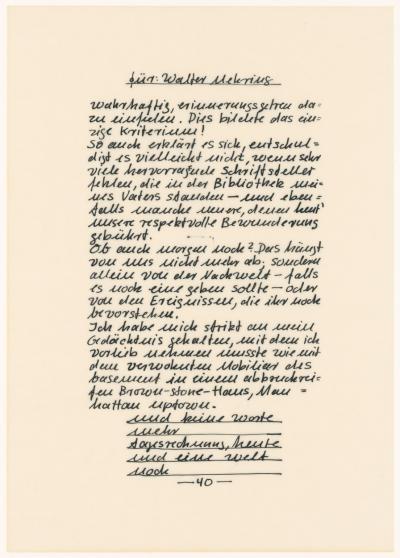 für: Walter Mehring
wahrhaftig, erinnerungsgetreu da=
zu einfielen. Dies bildete das ein=
zige Kriterium!
So auch erklärt es sich, entschul=
digt es vielleicht nicht, wenn sehr
viele hervorragende Schriftsteller
fehlen, die in der Bibliothek mei=
nes Vaters standen — und eben=
falls manche neuere, denen heut'
unsere respektvolle Bewunderung
gebührt.
Ob auch morgen noch? Das hängt
von uns nicht mehr ab: sondern
allein von der Nachwelt — falls
es noch eine geben sollte — oder
von den Ereignissen, die ihr noch
bevorstehen.
Ich habe mich strikt an mein
Gedächtnis gehalten, mit dem ich
vorlieb nehmen musste wie mit
dem verwohnten Mobiliar des
basement in einem abbruchrei=
fen Brown-stone-Haus, Man=
hattan uptown.
und keine worte
mehr
tagesrechnung, heute
und eine welt
noch
— 40 —